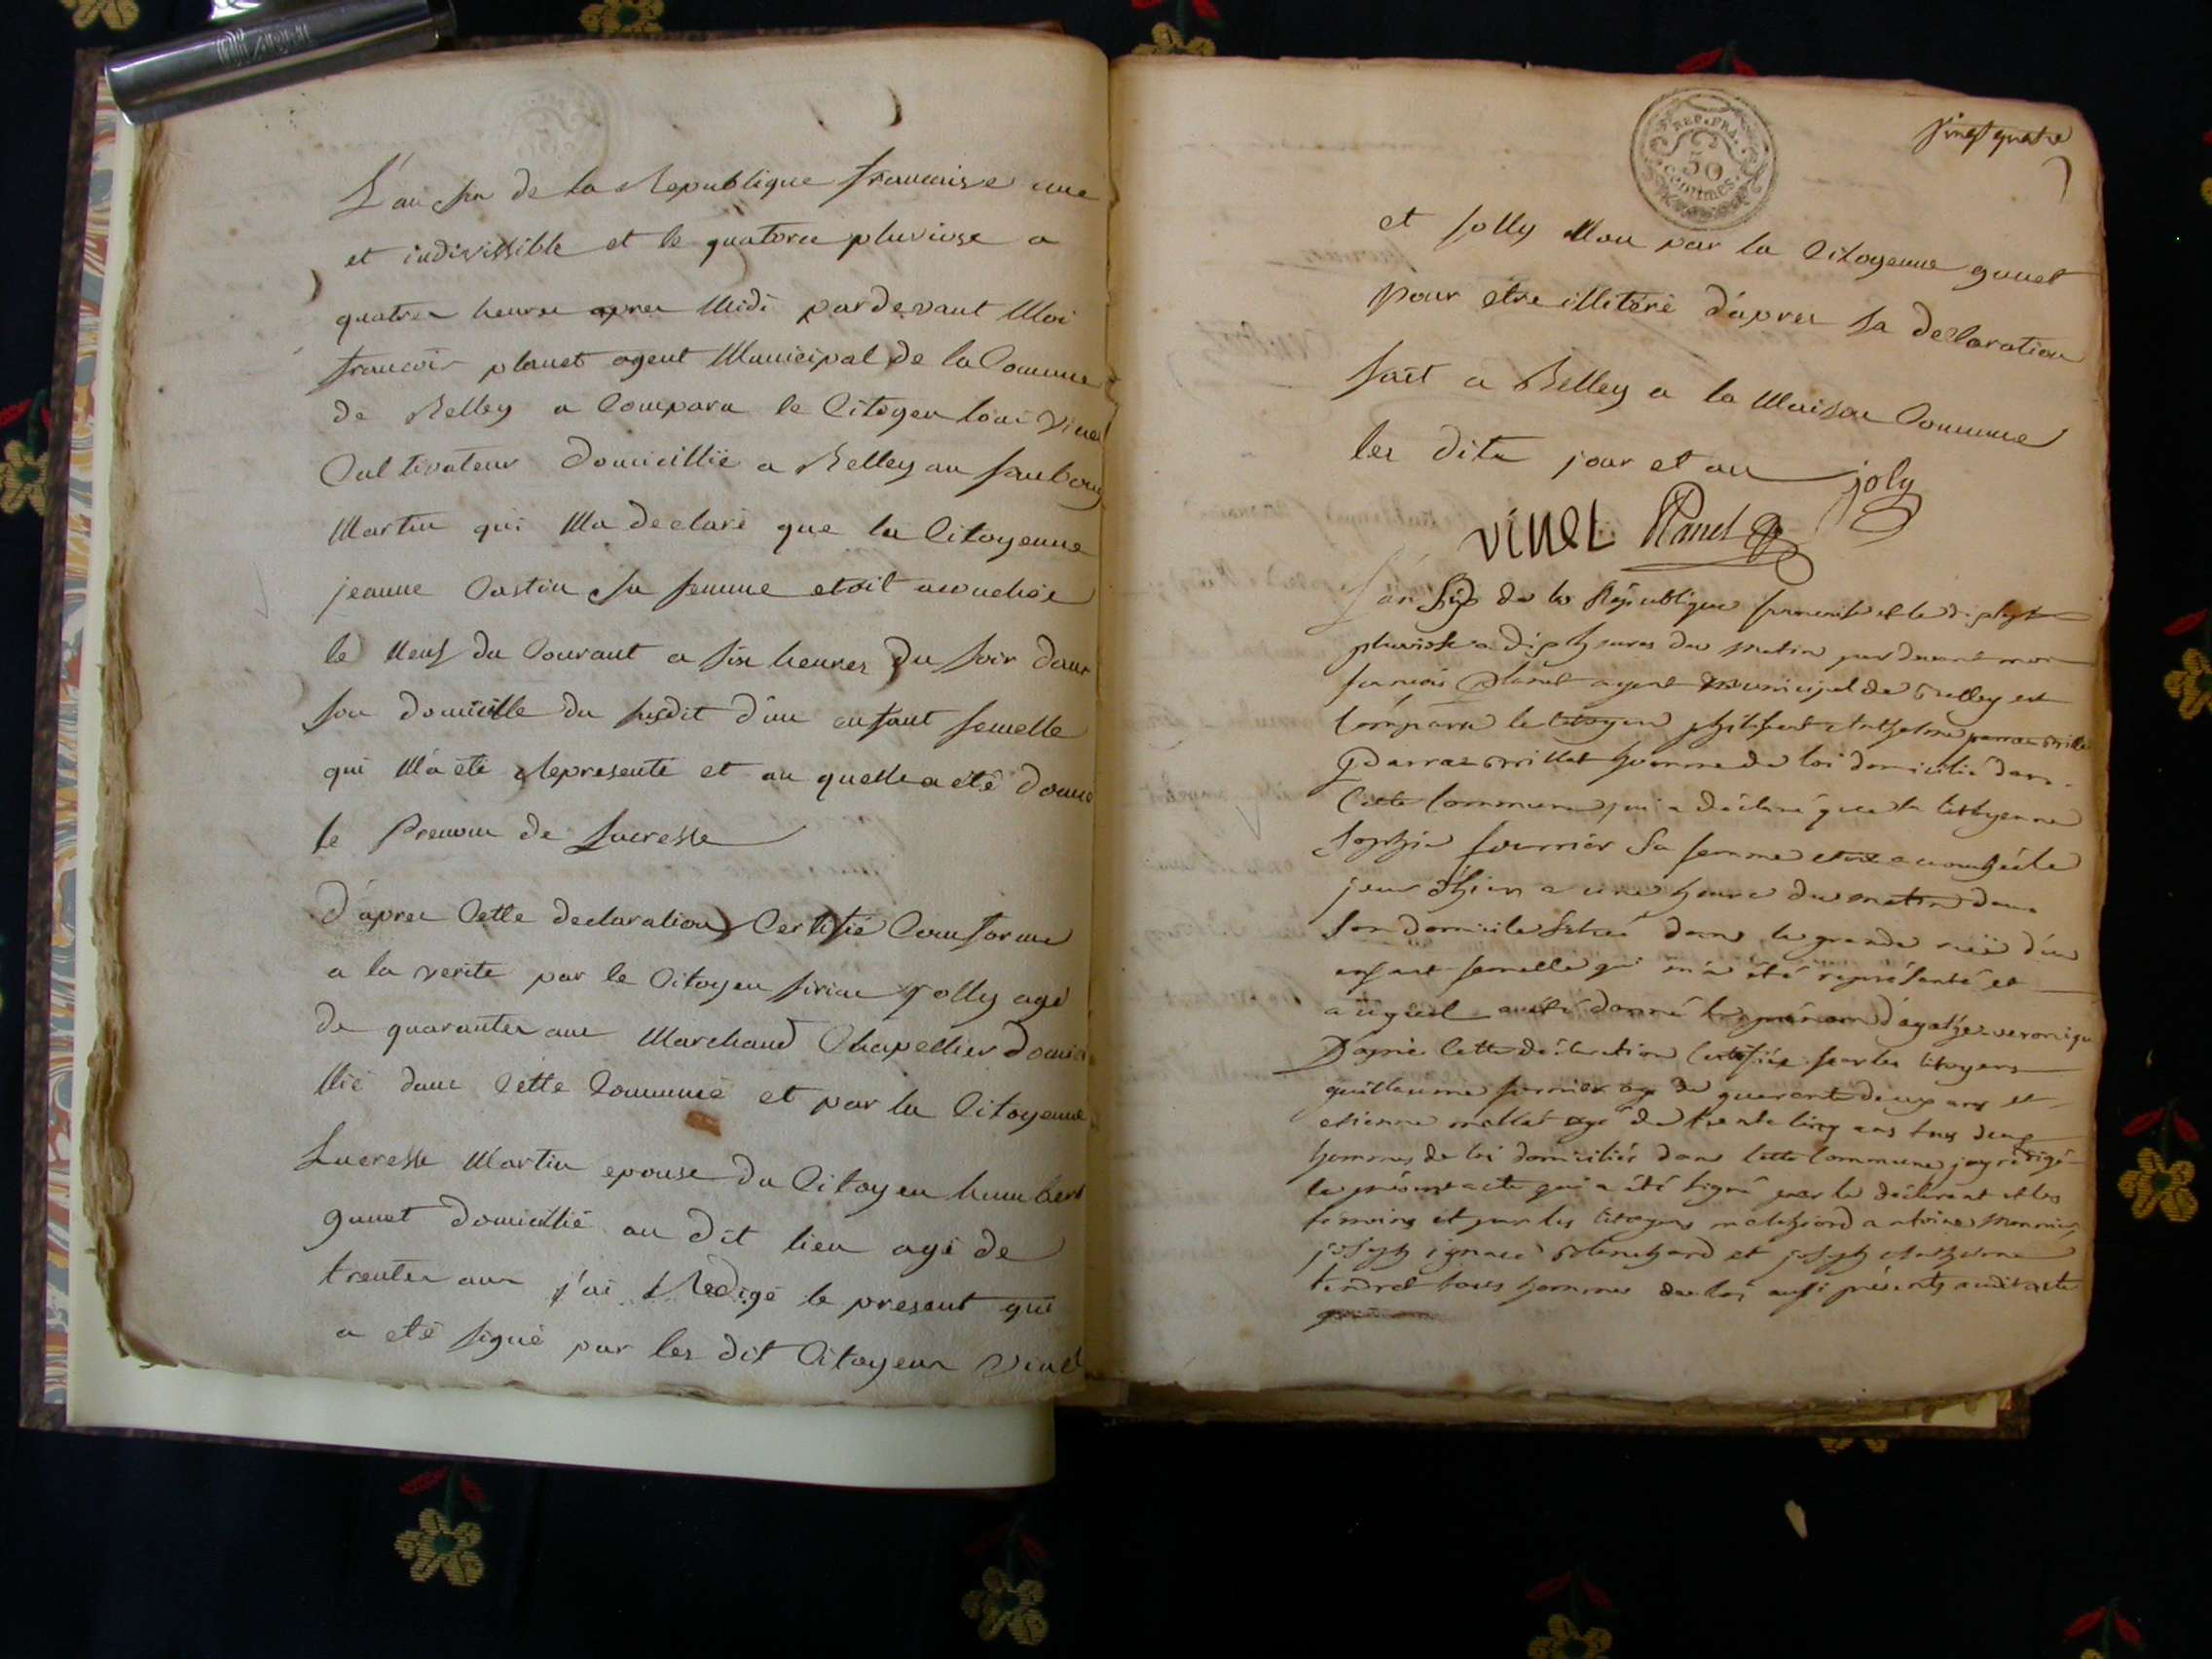 L'an six de la Republique francaise une
et indivissible et le quatorze pluviose a
quatres heures apres Midi pardevant Moi
francois planet agent Municipal de la Commune
de Belley a Comparu le Citoyen loui Vinel
Cultivateur domicillié a Belley au faubourg
Martin qui Ma declaré que la Citoyenne
jeanne Castin sa femme etoit acouchée
le Neuf du Courant a six heures du soir dans
son domicille du susdit d'un enfant femelle
qui M'a eté Represente et au quelle a eté donné
le Prenom de Lucresse
d'apres Cette declaration Certifié Conforme
a la verite par le Citoyen Jolly agé
de quarantes ans Marchand Chapellier domici
llié dans Cette Commune et par la Citoyenne
Lucresse Martin epouse du Citoyen humbert
gonet domicillié au dit lieu agé de
trentes ans j'ai Redigé le present qui
a eté signé par les dit Citoyens Vinel
REP. FRA.
50
centimes
vingt quatre
et Jolly Non par la Citoyenne gonet
pour etre illiteré d'apres sa declaration
fait a Belley a la Maison Commune
les dits jour et an joly
VINEL Planet
L'an Six de la République francaise et le dix sept
pluviose a dix heures du matin par devant moi
francois Planet agent municipal de Belley est
Comparu le Citoyen philibert Anthelme
Parra Brillat homme de loi domicilié dans
Cette Commune qui a déclaré que la Citoyenne
Sophie fournier Sa femme etoit acouchée le
jour d'hier a une heure du matin dans
Son domicile Situé dans la grande rue d'un
enfant femelle qui m'a été représenté et
auquel a été donné le prénom d'agathe veronique
D'après Cette déclaration Certifiée par les Citoyens
guillaume fournier agé de quarante deux ans et
etienne mollet agé de trente Cinq ans tous deux
hommes de loi domiciliés dans Cette Commune jay rédigé
le présent acte qui a été Signé par le déclarant et les
témoins et par les Citoyens melchior antoine Monnier,
joseph ignace Blanchard et joseph Anthelme
tendret tous hommes de loi aussi présents audit acte